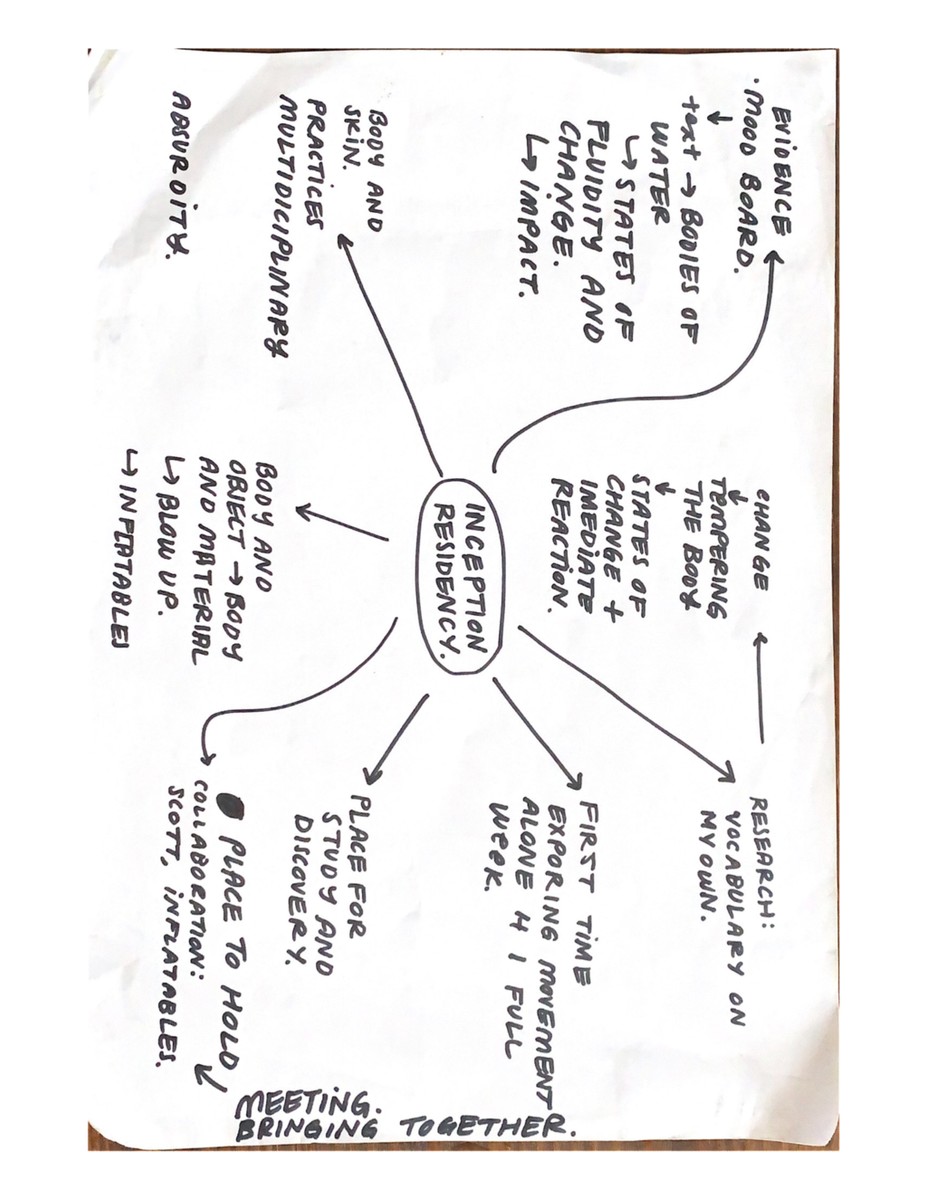 EVIDENCE
· MOOD BOARD.
↓
text → BODIES OF
WATER
↳ STATES OF
FLUIDITY AND
CHANGE.
↳ IMPACT.
CHANGE
↓
TEMPERING
THE BODY
↓
STATES OF
CHANGE +
IMEDIATE
REACTION.
RESEARCH:
VOCABULARY ON
MY OWN.
INCEPTION
RESIDENCY.
FIRST TIME
EXPORING MOVEMENT
ALONE 4 1 FULL
WEEK.
BODY AND
SKIN.
PRACTICES
MULTIDICIPLINARY
ABSURDITY.
BODY AND
OBJECT → BODY
AND MATERIAL
↳ BLOW UP.
↳ INFLATABLES
PLACE FOR
STUDY AND
DISCOVERY.
PLACE TO HOLD
COLLABORATION:
SCOTT, INFLATABLES.
MEETING.
BRINGING TOGETHER.